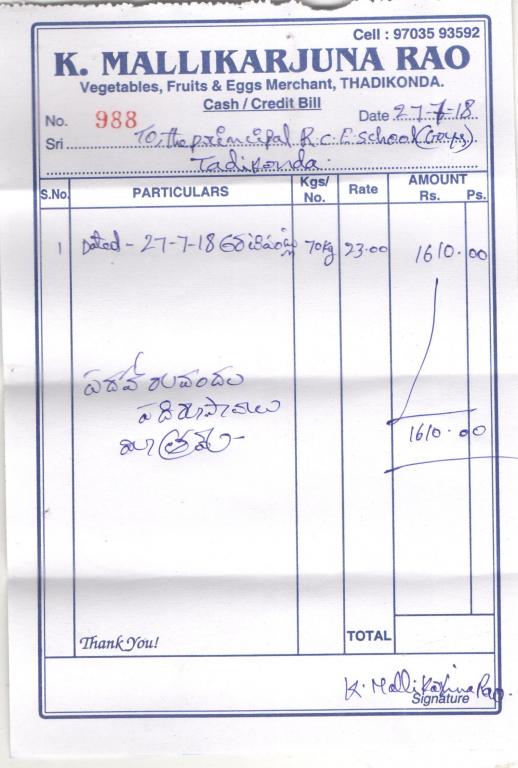 Cell : 97035 93592
K. MALLIKARJUNA RAO
Vegetables, Fruits & Eggs Merchant, THADIKONDA.
Cash / Credit Bill
No. 988 Date 27-7-18
Sri To, the principal R.C.E school (Boys).
Tadikonda.
S.No. PARTICULARS Kgs/ No. Rate AMOUNT Rs. Ps.
1 Dated - 27-7-18 అరటిపండ్లు 70kg 23.00 1610.00
పదహారువందల
పది రూపాయలు
మాత్రమే-
1610.00
Thank You! TOTAL
K. Mallikarjuna Rao.
Signature